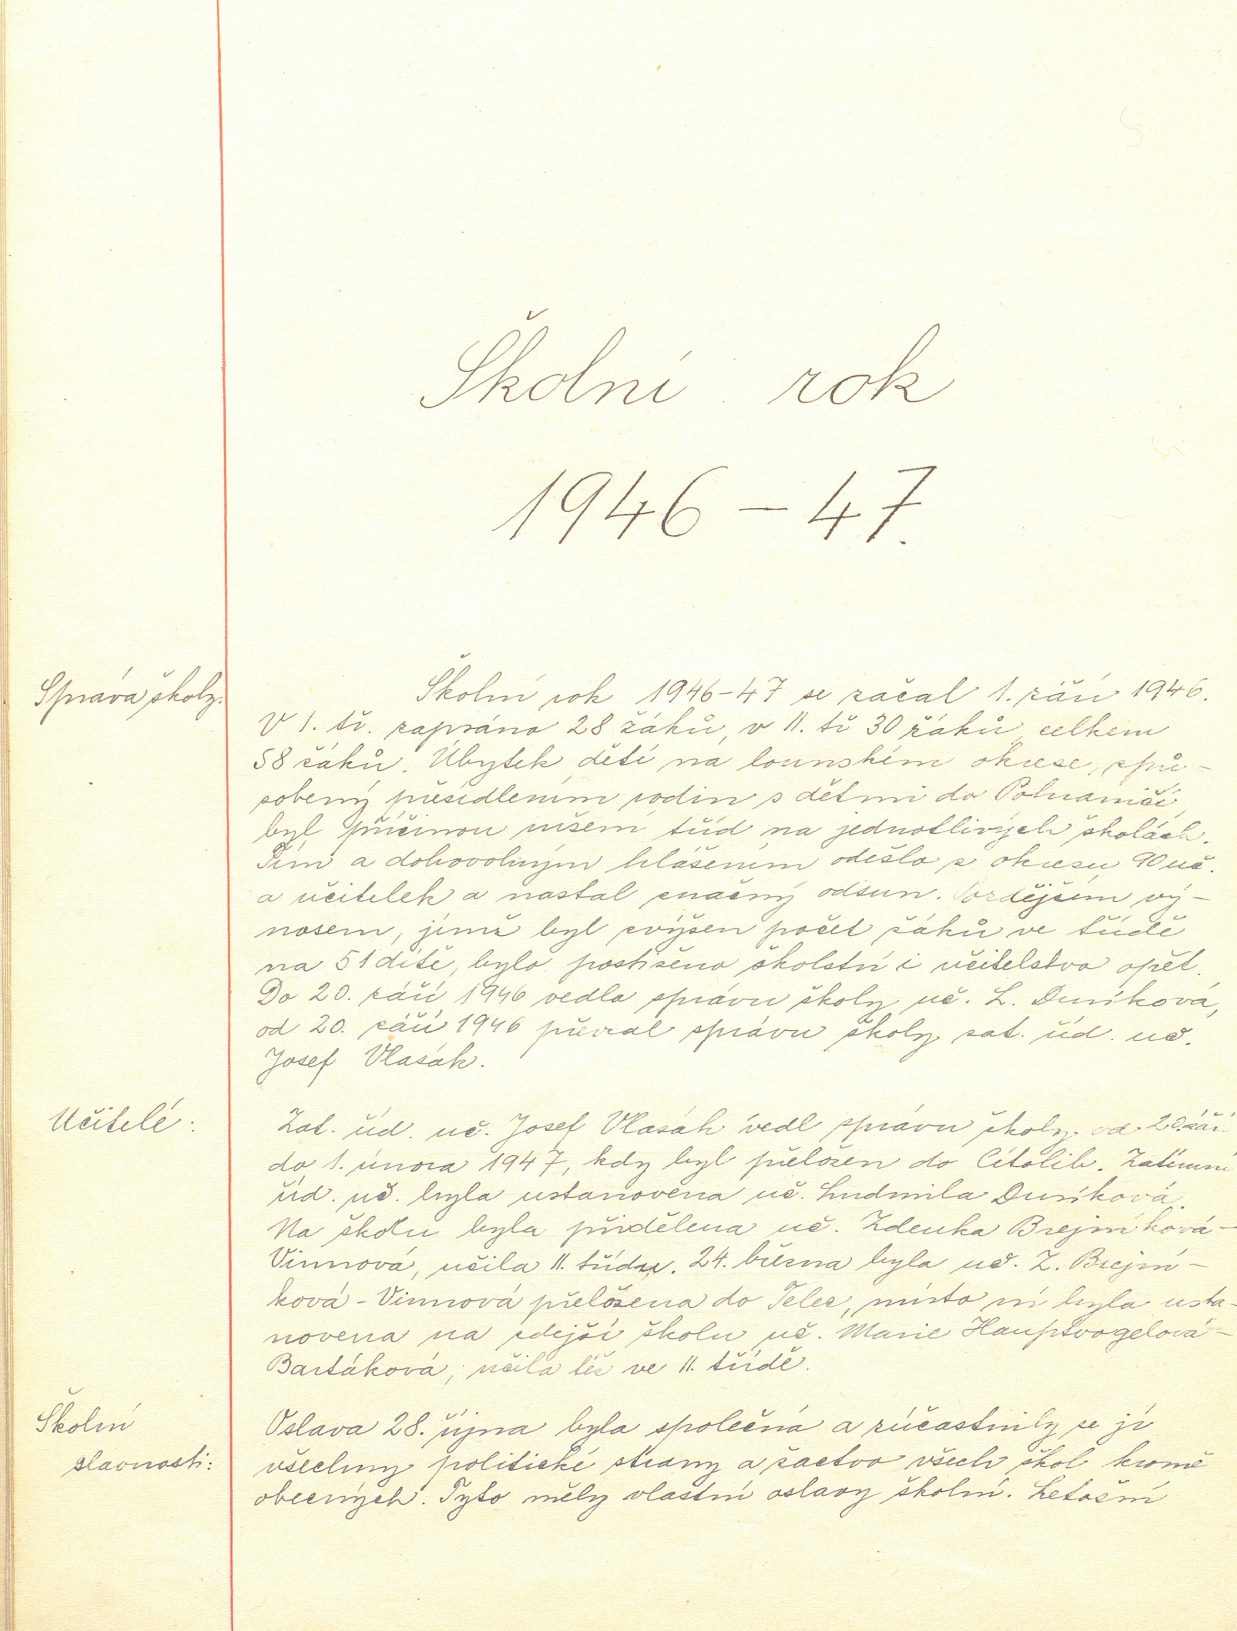 Školní rok
1946 – 47.
Správa školy:
Školní rok 1946-47 se začal 1. září 1946.
V 1. tř. zapsáno 28 žáků, v II. tř 30 žáků, celkem
58 žáků. Úbytek dětí na lounském okrese, způ-
sobený přesídlením rodin s dětmi do Pohraničí,
byl příčinou rušení tříd na jednotlivých školách.
Tím a dobrovolným hlášením odešlo z okresu 90 uč.
a učitelek a nastal značný odsun. Pozdějším vý-
nosem, jímž byl zvýšen počet žáků ve třídě
na 51 dítě, bylo postiženo školství i učitelstvo opět.
Do 20. září 1946 vedla správu školy uč. L. Dusíková,
od 20. září 1946 převzal správu školy zat. úd. uč.
Josef Vlasák.
Učitelé:
Zat. úd. uč. Josef Vlasák vedl správu školy od 20. září
do 1. února 1947, kdy byl přeložen do Cítolib. Zatímní
úd. uč. byla ustanovena uč. Ludmila Dusíková.
Na školu byla přidělena uč. Zdenka Brejníková-
Vinnová, učila II. třídu. 24. března byla uč. Z. Brejní-
ková - Vinnová přeložena do Telec, místo ní byla usta-
novena na zdejší školu uč. Marie Hauptvogelová-
Bartáková, učila též ve II. třídě.
Školní
slavnosti:
Oslava 28. října byla společná a zúčastnily se jí
všechny politické strany a žactvo všech škol kromě
obecných. Tyto měly vlastní oslavy školní. Letošní